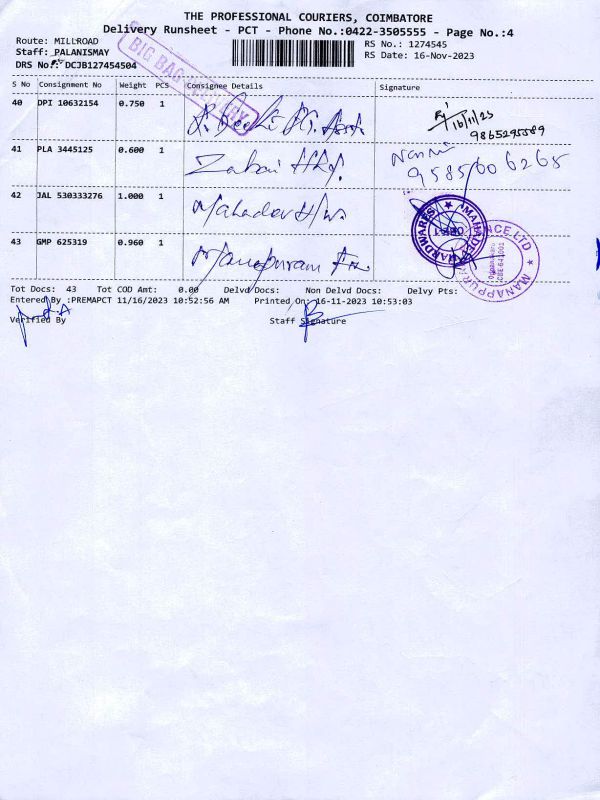 THE PROFESSIONAL COURIERS, COIMBATORE
Delivery Runsheet - PCT - Phone No.:0422-3505555 - Page No.:4
Route: MILLROAD
Staff: PALANISMAY
DRS No.: DCJB127454504
RS No.: 1274545
RS Date: 16-Nov-2023
BIG BAG DELIVERY
S No Consignment No Weight PCS Consignee Details Signature
40 DPI 10632154 0.750 1
16/11/23
9865295589
41 PLA 3445125 0.600 1 Zabai
9585006265
42 JAL 530333276 1.000 1 Mahadev H/w
MAHADEV HARDWARES
CBE-1
43 GMP 625319 0.960 1 Manapuram Fin
MANAPPURAM
NCE LTD
CBE-641001
Tot Docs: 43 Tot COD Amt: 0.00 Delvd Docs: Non Delvd Docs: Delvy Pts:
Entered By :PREMAPCT 11/16/2023 10:52:56 AM Printed On: 16-11-2023 10:53:03
Verified By Staff Signature